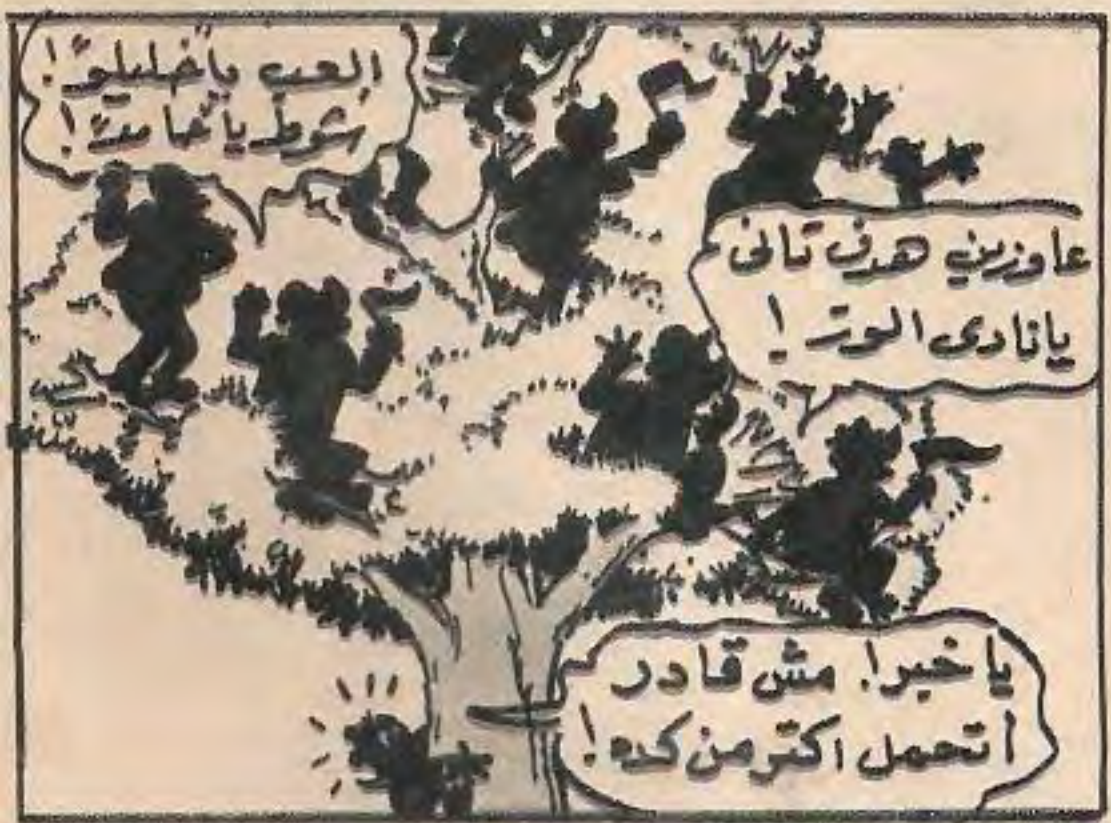 إلعب يا خليلو!
شوط يا حامد!
عاوزين هدف تانى
يانادى الوتر!
يا خبر! مش قادر
أتحمل اكتر من كده!